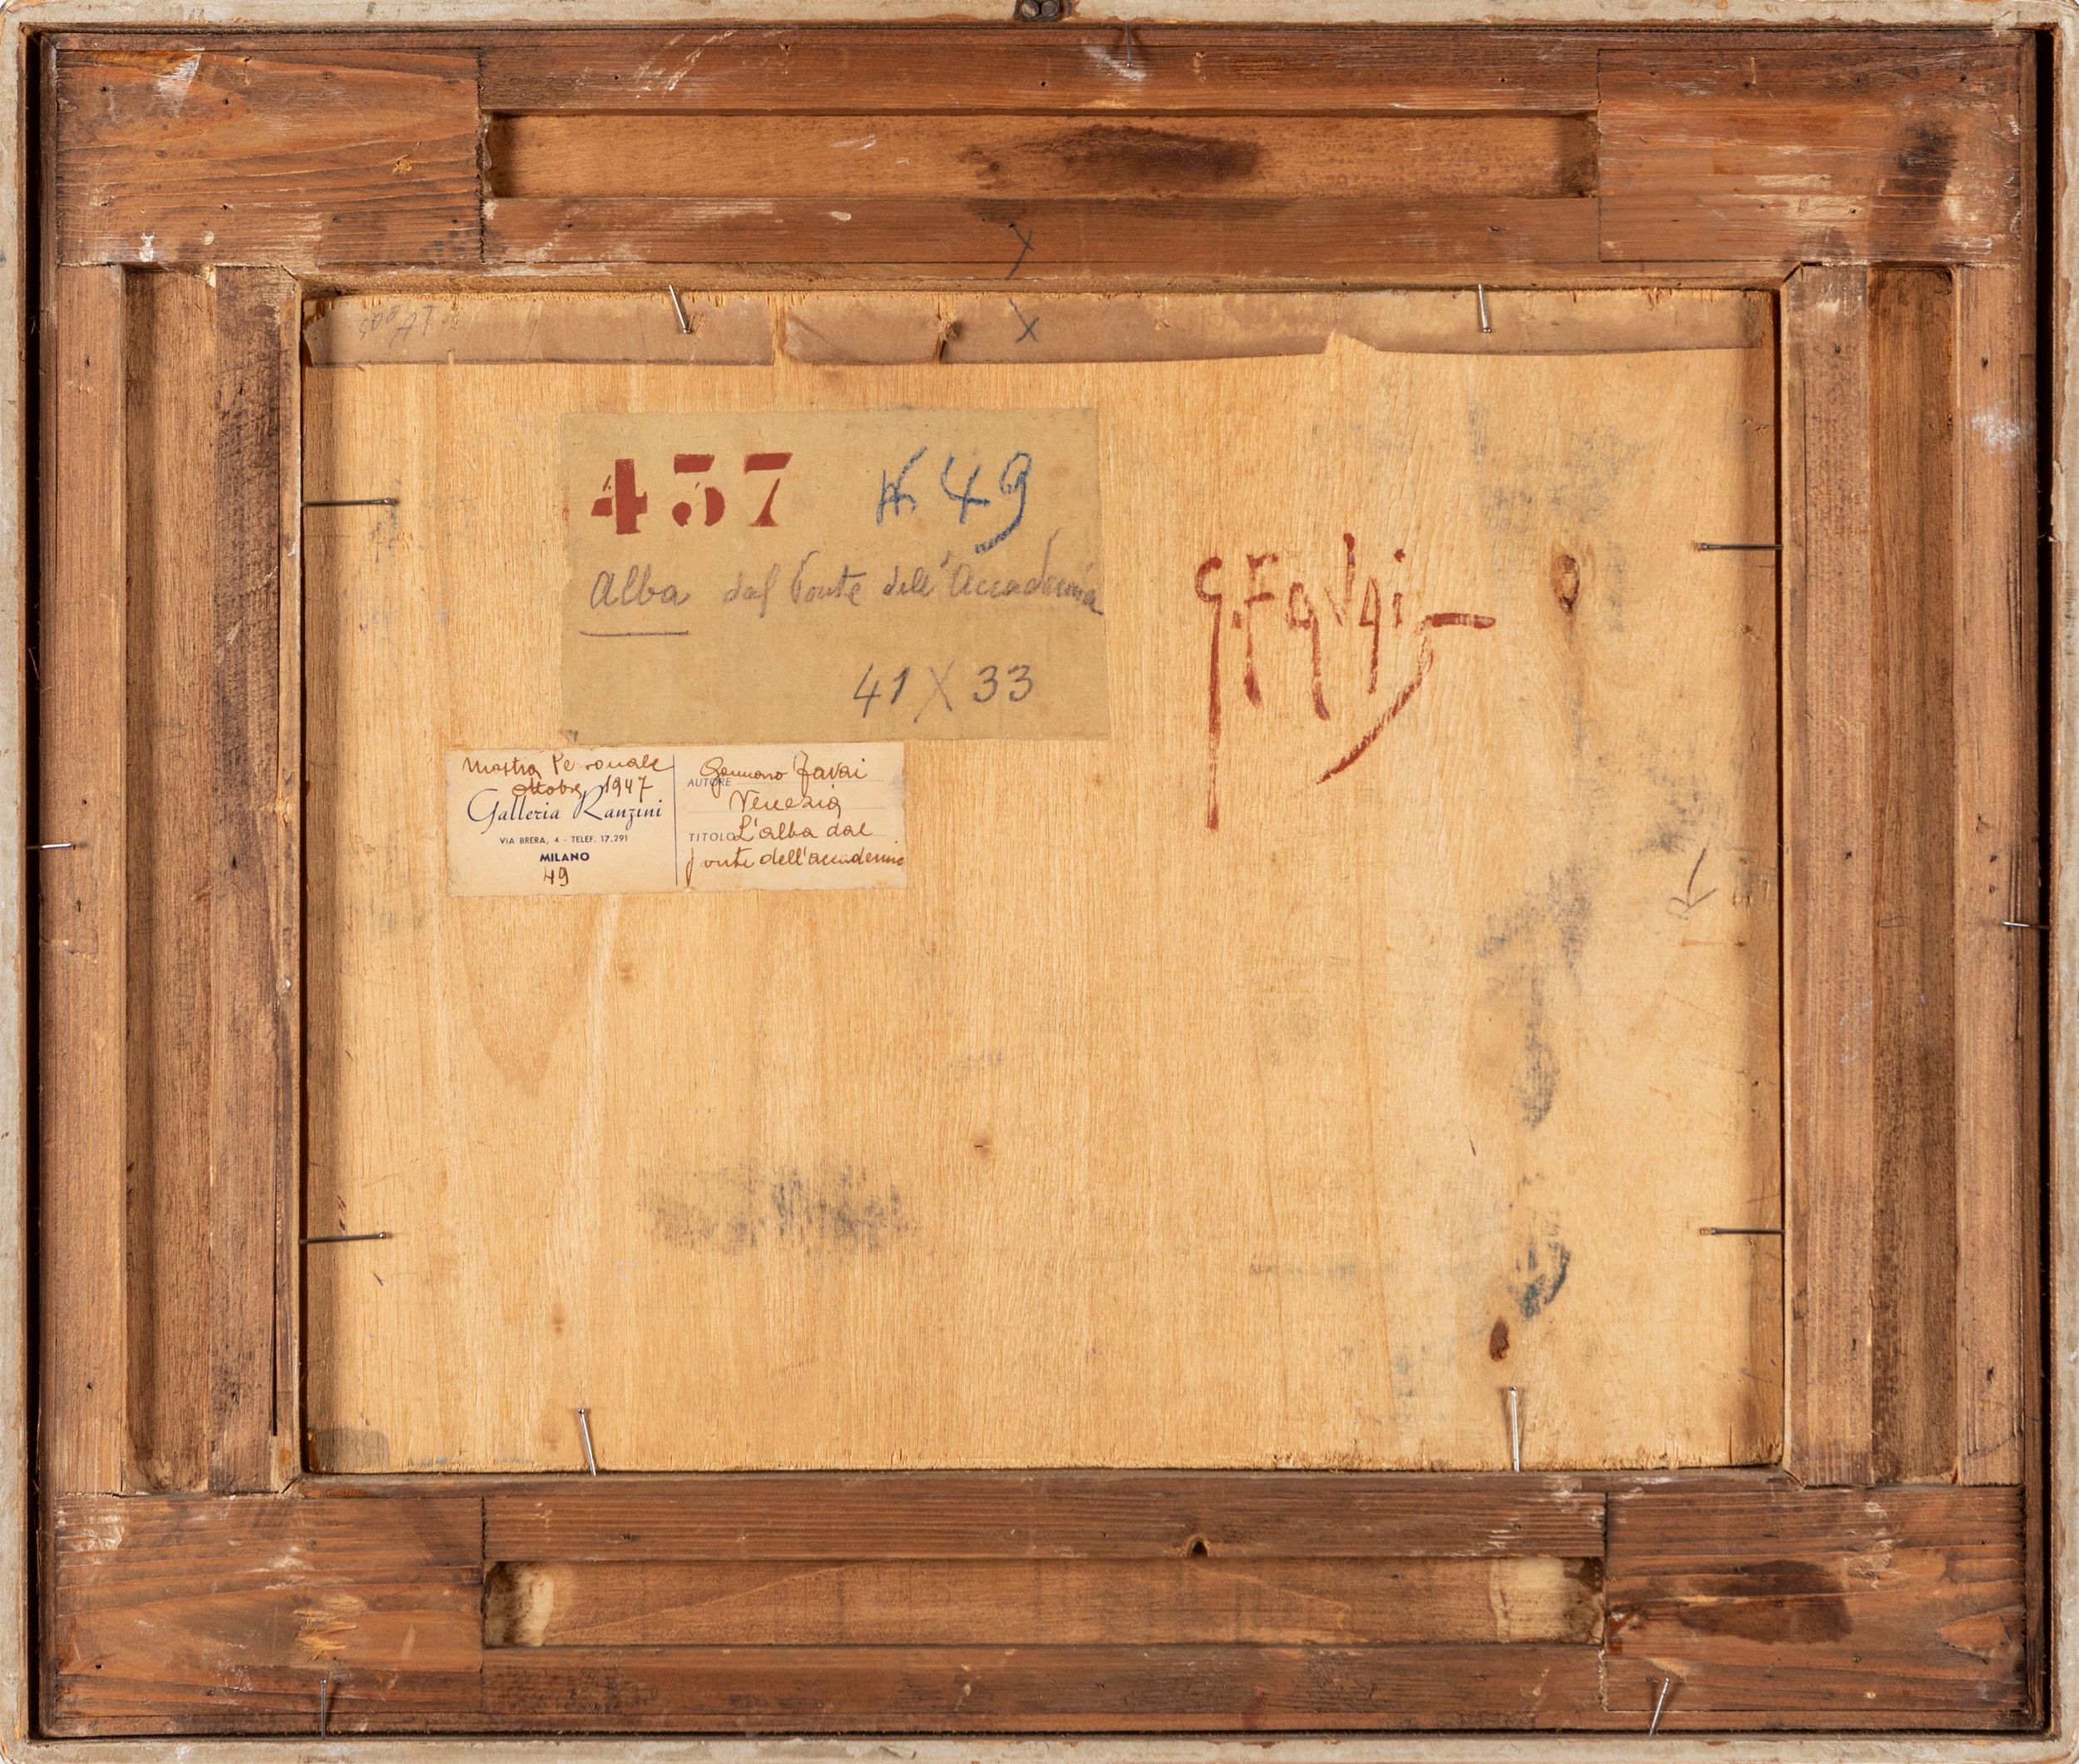 X
X
437 N 49
Alba dal Ponte dell'Accademia
41 X 33
G. Favai
Mostra Personale
ottobre 1947
Galleria Ranzini
VIA BRERA, 4 - TELEF. 17.291
MILANO
49
AUTORE Gennaro Favai
Venezia
TITOLO L'alba dal
ponte dell'accademia